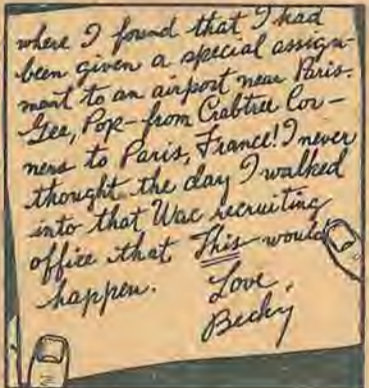 where I found that I had
been given a special assign-
ment to an airport near Paris.
Gee, Pop—from Crabtree Cor-
ners to Paris, France! I never
thought the day I walked
into that Wac recruiting
office that This would
happen.
Love,
Becky